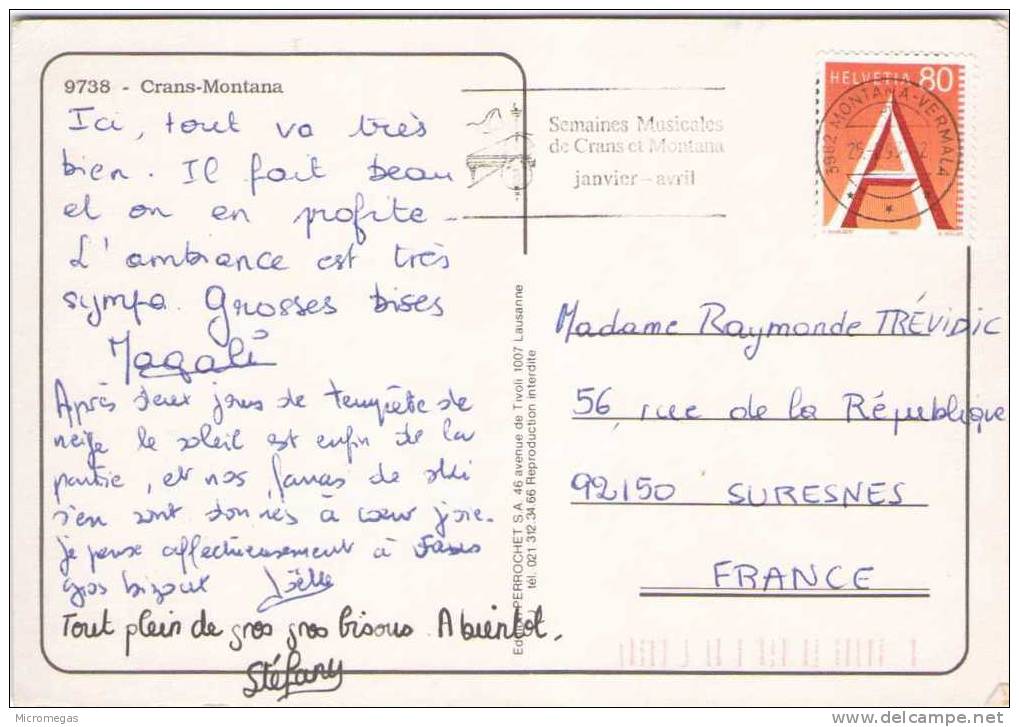 9738 - Crans-Montana
Ici, tout va très
bien. Il fait beau
et on en profite
L'ambiance est très
sympa. Grosses bises
Magali
Après deux jours de tempête de
neige le soleil est enfin de la
partie, et nos fanas de ski
s'en sont donnés à cœur joie.
je pense affectueusement à
gros bizoux Joëlle
Tout plein de gros gros bisous. A bientot.
Stéfany
Semaines Musicales
de Crans et Montana
janvier - avril
HELVETIA 80
3962 MONTANA-VERMALA
Madame Raymonde TRÉVIDIC
56, rue de la République
92150 SURESNES
FRANCE
PERROCHET S.A. 46 avenue de Tivoli 1007 Lausanne
tél. 021 312.34.66 Reproduction interdite
Micromegas
delcampe.net